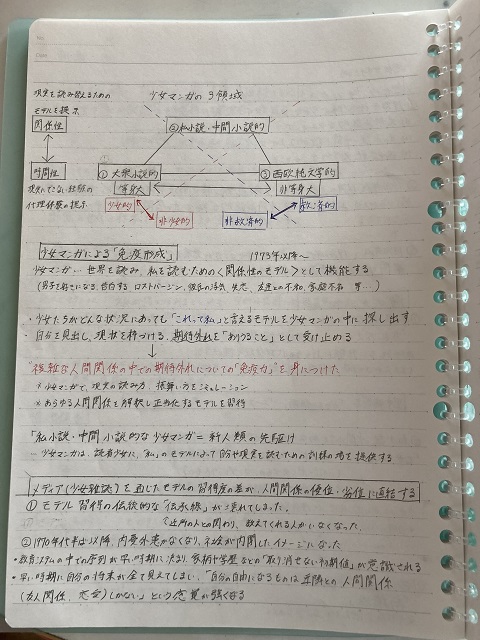 No.
Date
現実を読み替えるための
モデルを提示
少女マンガの3領域
関係性
②私小説・中間小説的
時間性
①大衆小説的
③西欧純文学的
等身大
非等身大
現実にない経験の
代理体験の提示
少女的
非少女的
非救済的
救済的
少女マンガによる「免疫形成」
1973年以降〜
少女マンガ…世界を読み、私を読むための〈関係性のモデル〉として機能する
(男子を好きになる、告白する、ロストバージン、彼氏の浮気、失恋、友達との不和、家庭不和 等…)
・少女たちがどんな状況にあっても「これって私」と言えるモデルを少女マンガの中に探し出す
・自分を見出し、現状を枠づける、期待外れを「ありうること」として受け止める
↓
"複雑な人間関係の中での期待外れについての"免疫力"を身につけた
※少女マンガで、現実の読み方、振舞い方をシミュレーション
※あらゆる人間関係を解釈し正当化するモデルを習得
「私小説・中間小説的な少女マンガ=新人類の先駆け
…少女マンガは、読者少女に、「私」のモデルによって自分や現実を読むための訓練の場を提供する
メディア(少女雑誌)を通じたモデルの習得度の差が、人間関係の優位・劣位に直結する
①モデル習得の伝統的な「伝承線」が潰れてしまった。
近所の人との関わり、教えてくれる人がいなくなった。
②1970年代半ば以降、内憂外患がなくなり、社会が内閉したイメージになった
・教育システムの中での序列が早い時期に決まり、家柄や学歴などの「取り消せない初期値」が意識される
・早い時期に自分の将来が全て見えてしまい、「自分の自由になるものは差際との人間関係
(友人関係、恋愛)しかない」という感覚が強くなる